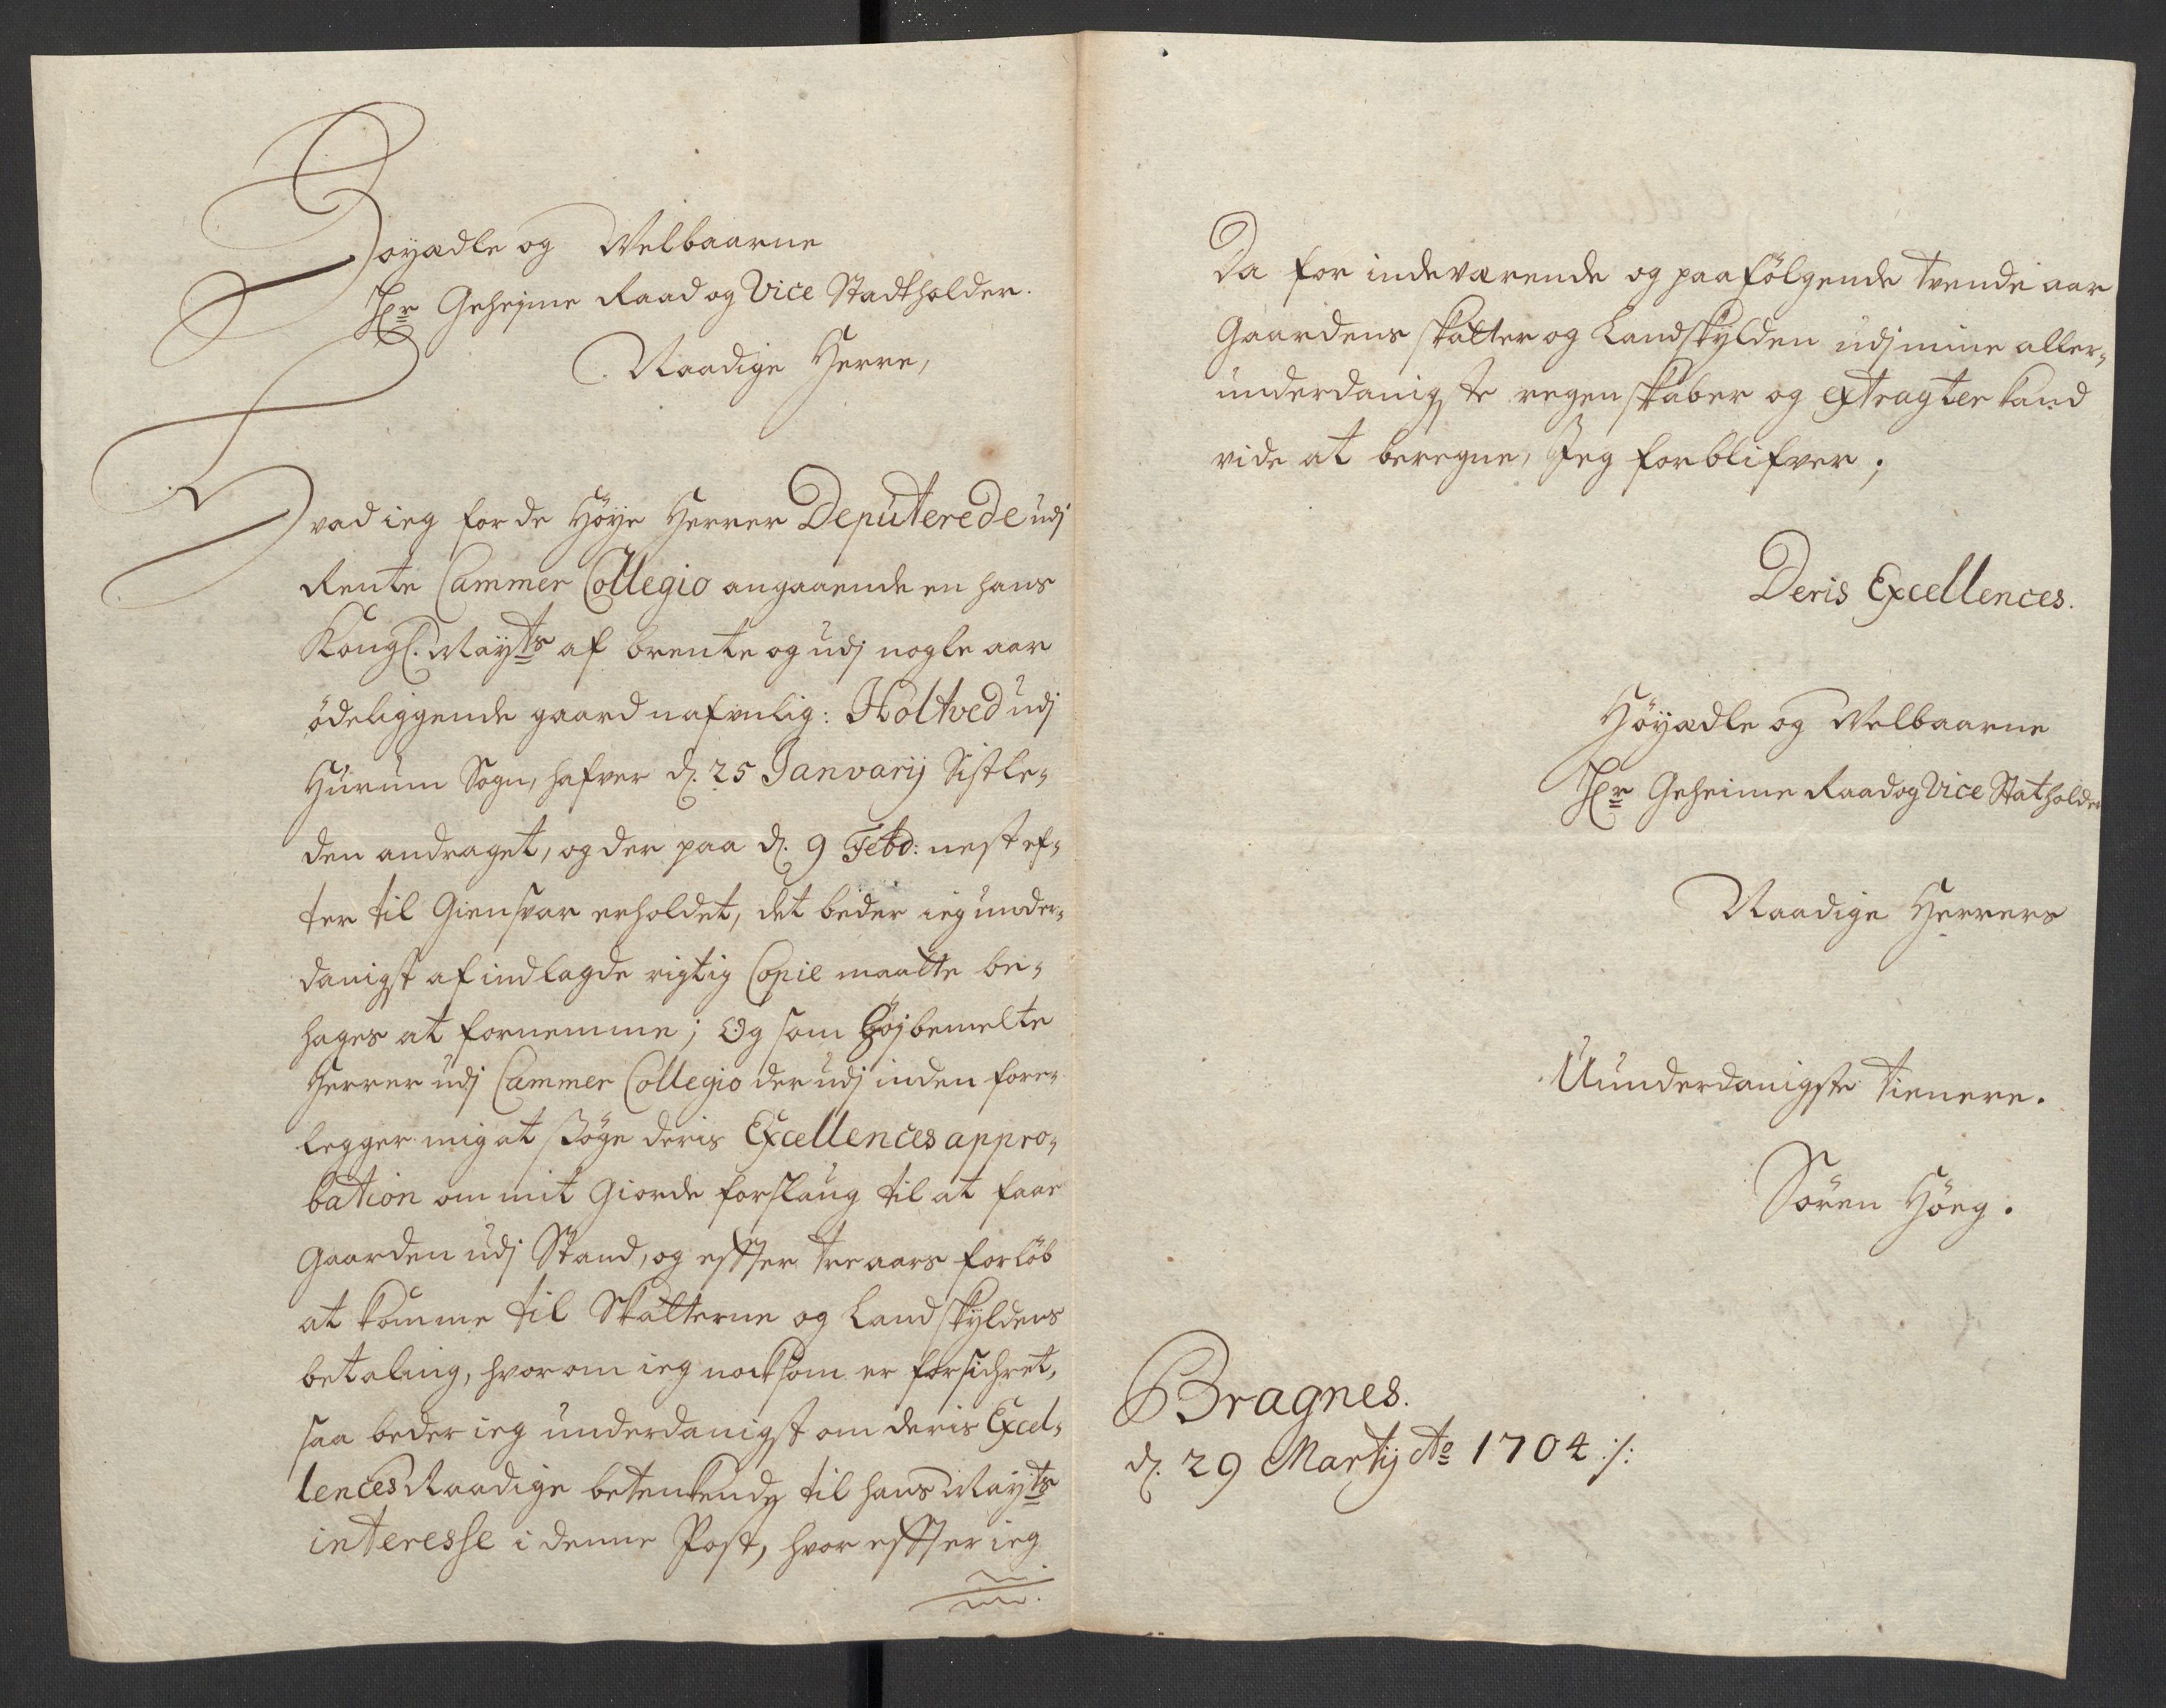 Höyædle og Velbaarne
Hr Geheime Raad og Vice Stadtholder.
Naadige Herre,
Hvad ieg for de Höye Herrer Deputerede udj
Rente Cammer Collegio angaaende en hans
Kongl. Mayts af brente og udj nogle aar
ödeliggende gaard nafnlig: Holtved udj
Hurum Sogn, hafver d. 25 Janvarij Sistle-
den andraget, og der paa d. 9 Febr: nest ef-
ter til Giensvar erholdet, det beder ieg under-
danigst af indlagde rigtig Copie maatte be-
hages at fornemme; Og som Höjbemelte
Herrer udj Cammer Collegio der udj inden fore-
legger mig at söge deris Excellences appro-
bation om mit Giorde forslaug til at faae
Gaarden udj Stand, og effter tre aars forlöb
at komme til Skatterne og Landskyldens
betaling, hvorom ieg nocksom er forsichret,
saa beder ieg underdanigst om deris Excel-
lences Naadige betenkende til hans Mayts
interesse i denne Post, hvor effter ieg
Da for indeværende og paafölgende trende aar
Gaardens skatter og Landskylden udj mine aller-
underdanigste regenskaber og extragter kand
vide at beregne, Jeg forblifver;
Deris Excellences.
Höyædle og Velbaarne
Hr Geheime Raad og Vice Statholder
Naadige Herrers
Uunderdanigste tienere.
Sören Höeg.
Bragnes.
d. 29 Martij Ao 1704 ./.